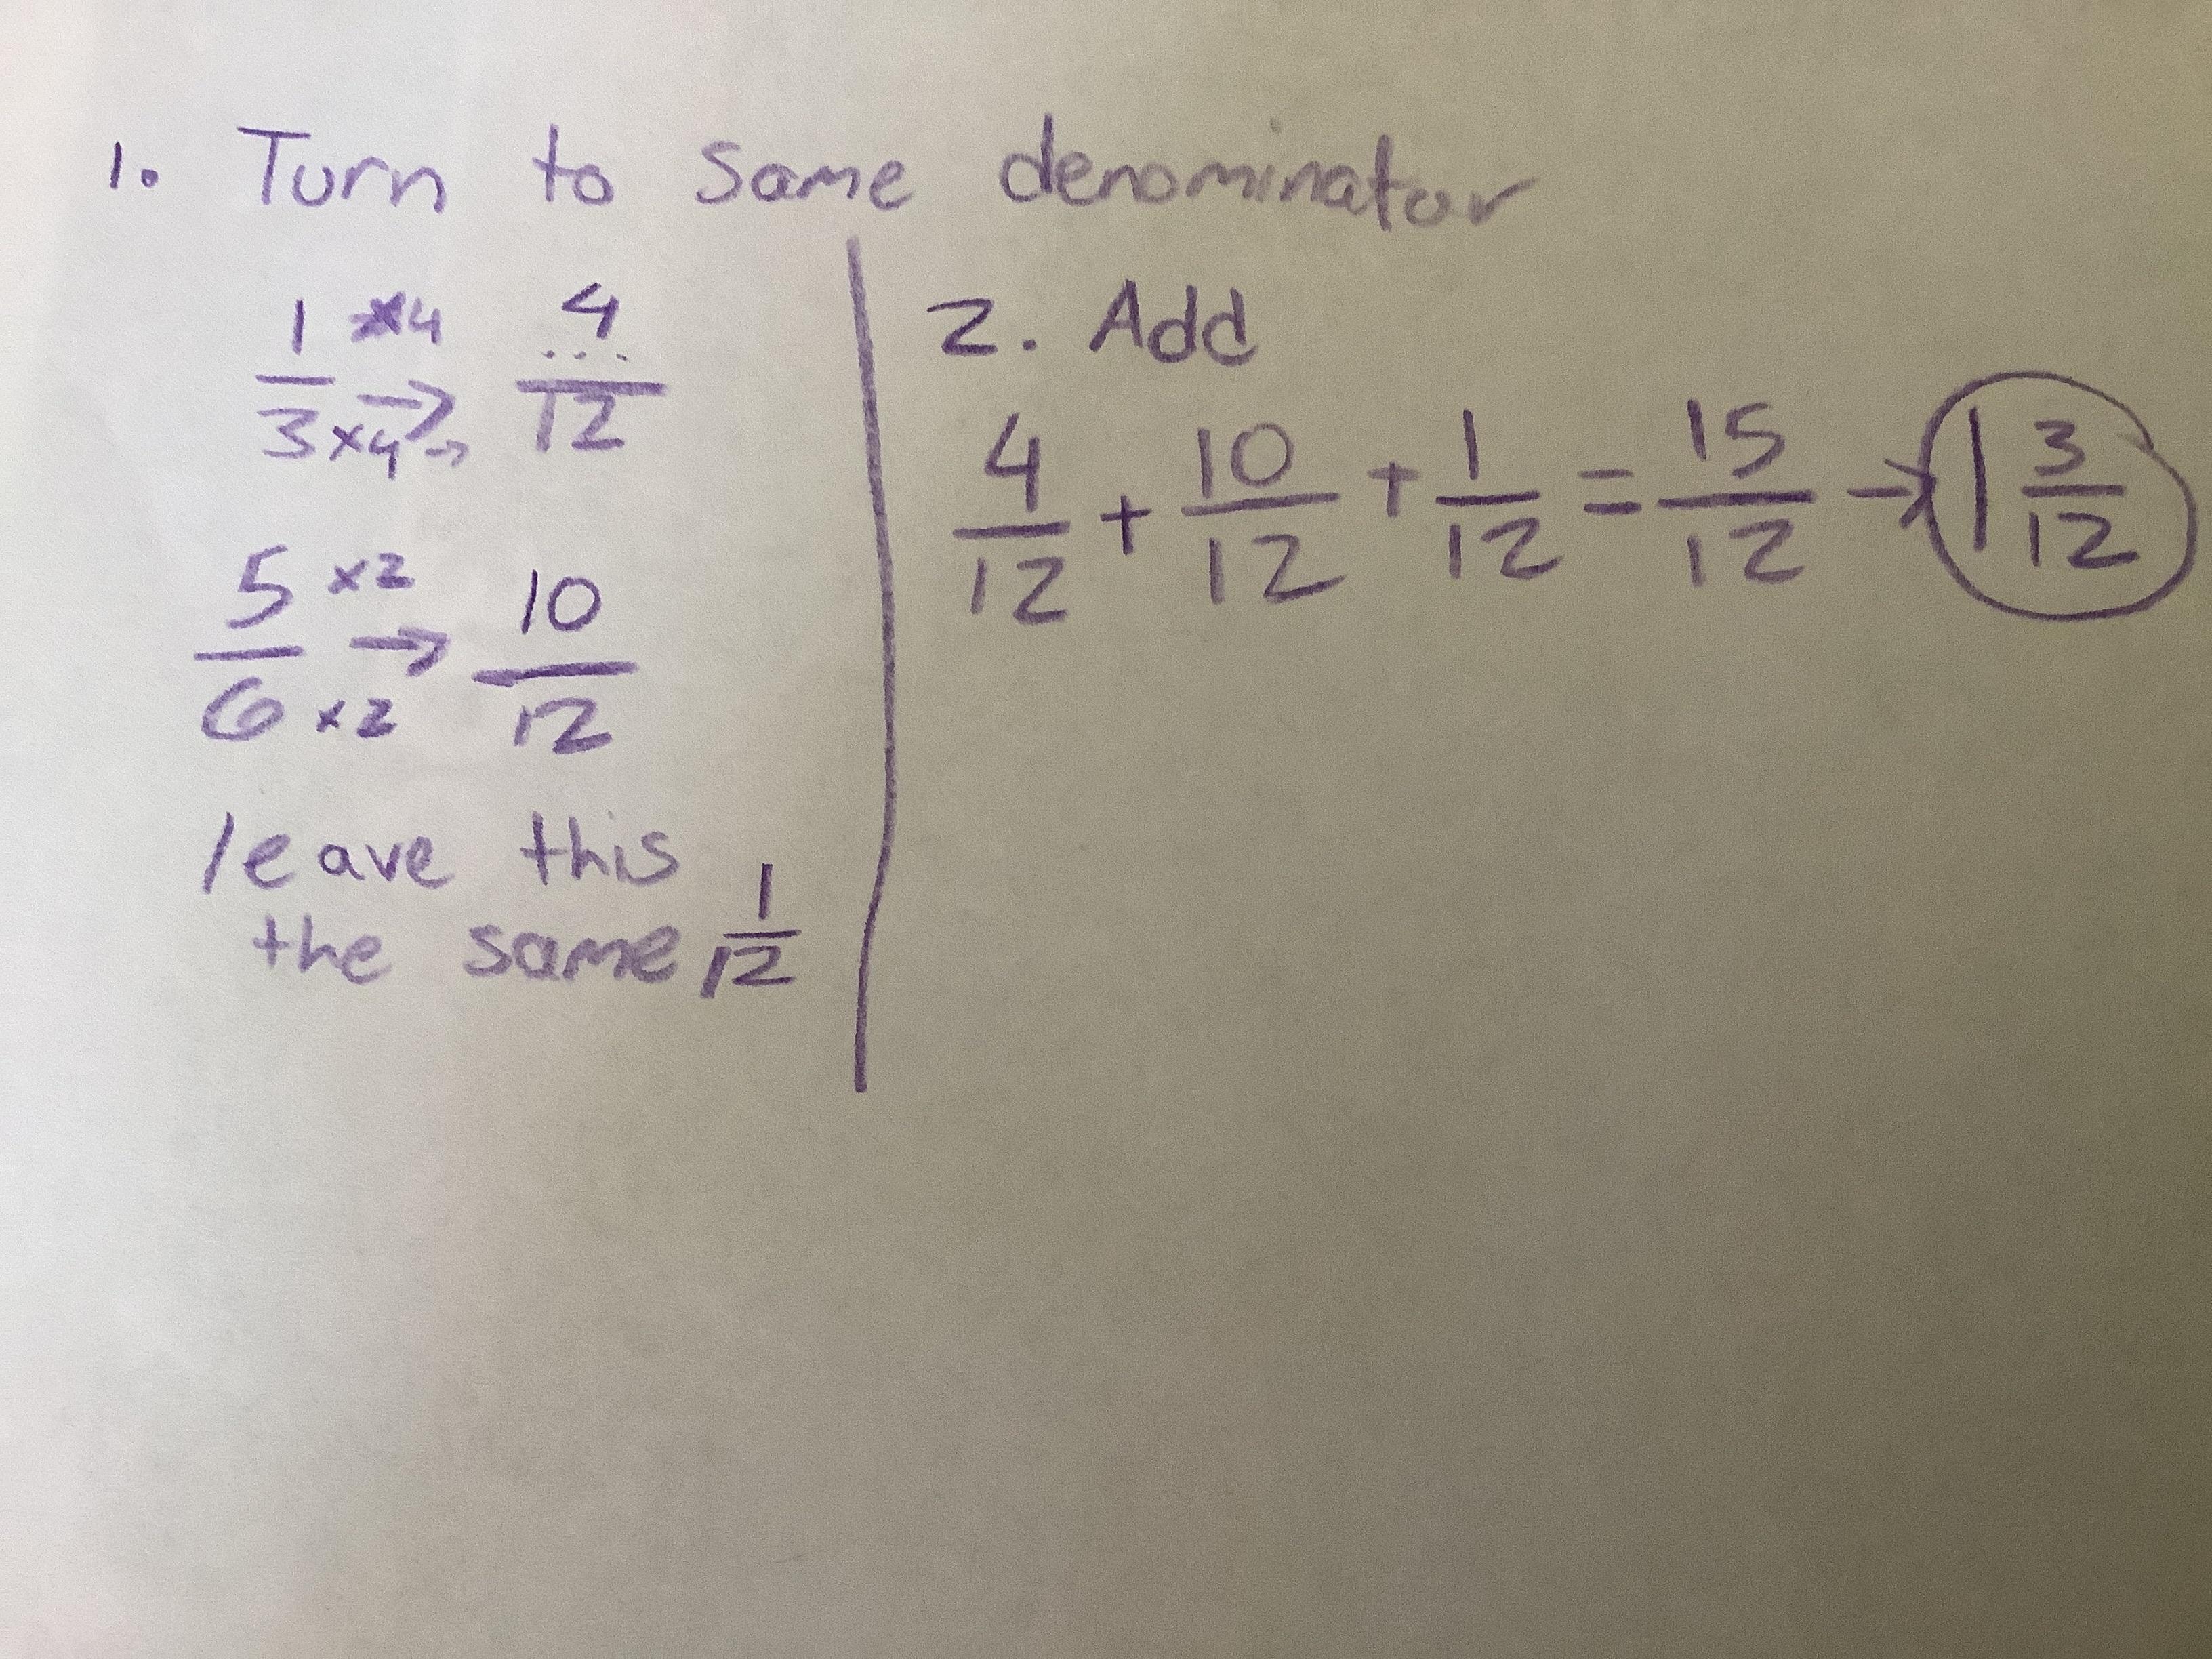 1. Turn to same denominator
1/3 ×4 ×4 → → 4/12
5/6 ×2 ×2 → 10/12
leave this
the same 1/12
2. Add
4/12 + 10/12 + 1/12 = 15/12 → 1 3/12